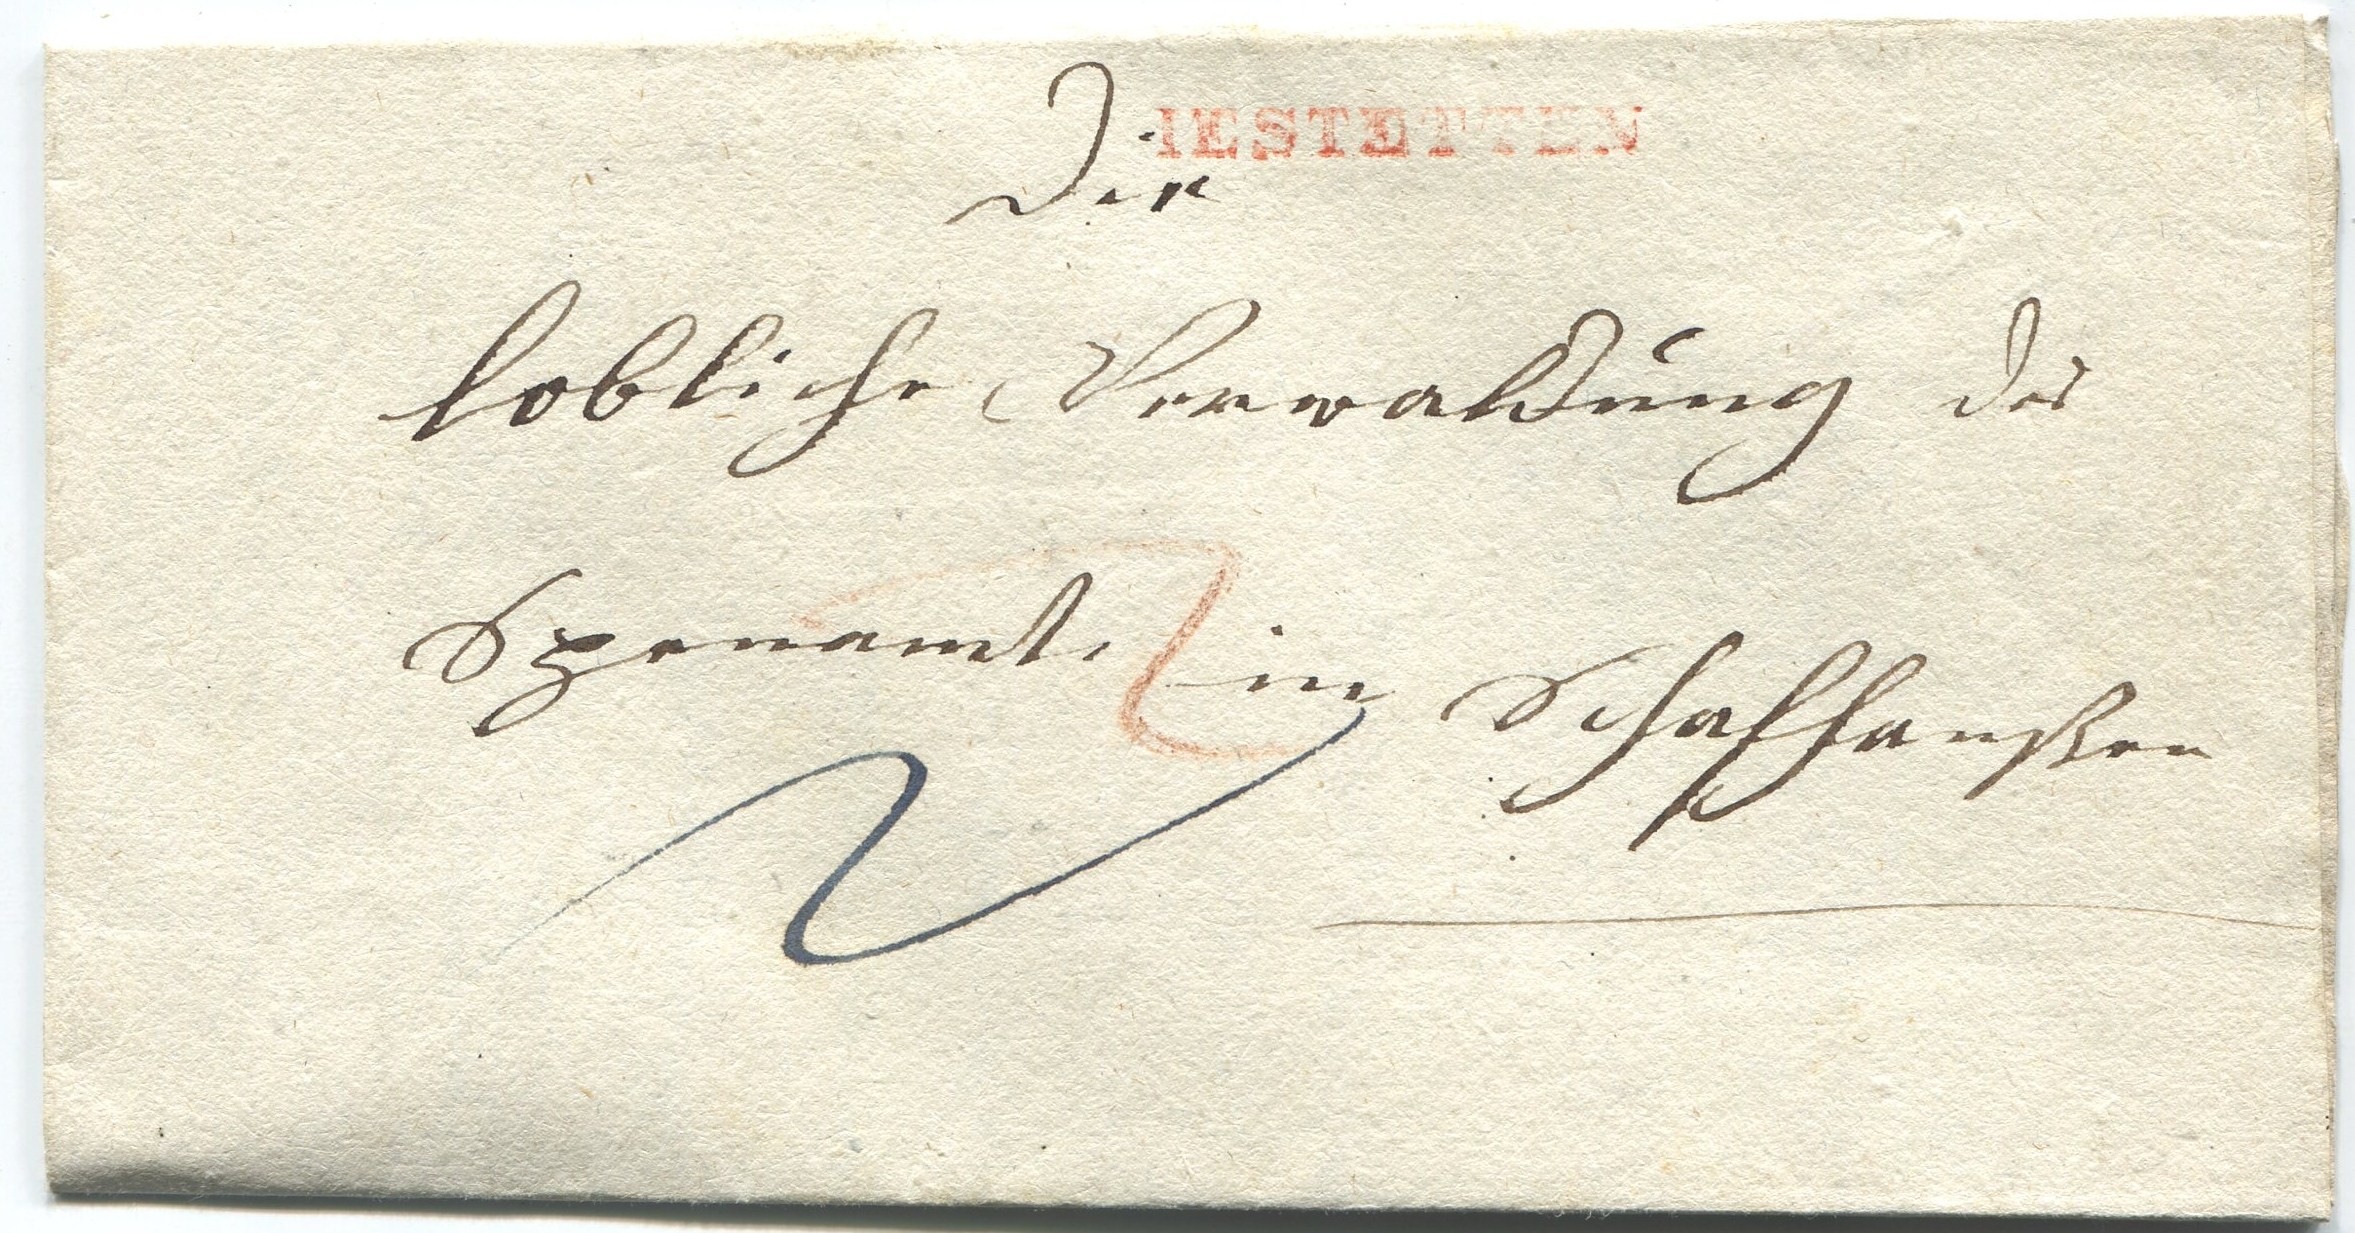 IESTETTEN
Der
lobliche Verwaltung des
Spenamts in Schafhaußen
2
2